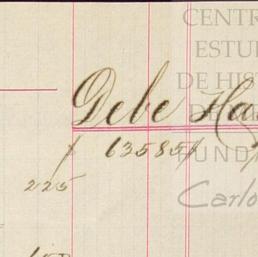 CENTR
ESTU
DE HIS
Debe Ha
63585
FUND
225
Carlo